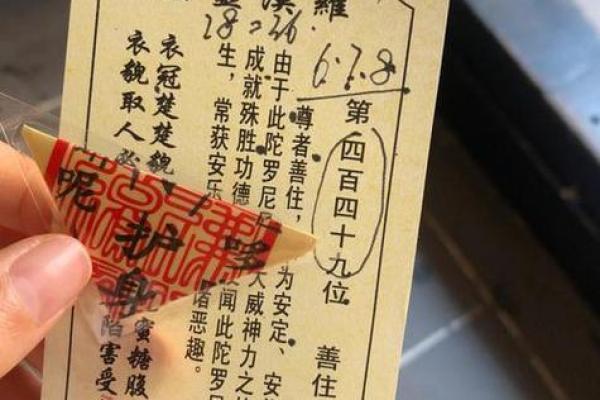 羅
漢
6.7.8
28=26
第四百四十九位 善住
尊者善住， 为安定、安
由于此陀罗尼 大威神力之
成就殊胜功德 闻此陀罗
生，常获安乐 诸恶趣。
衣冠楚楚貌 蜜糖腹
衣貌取人 陷害受
哆
护身
呢